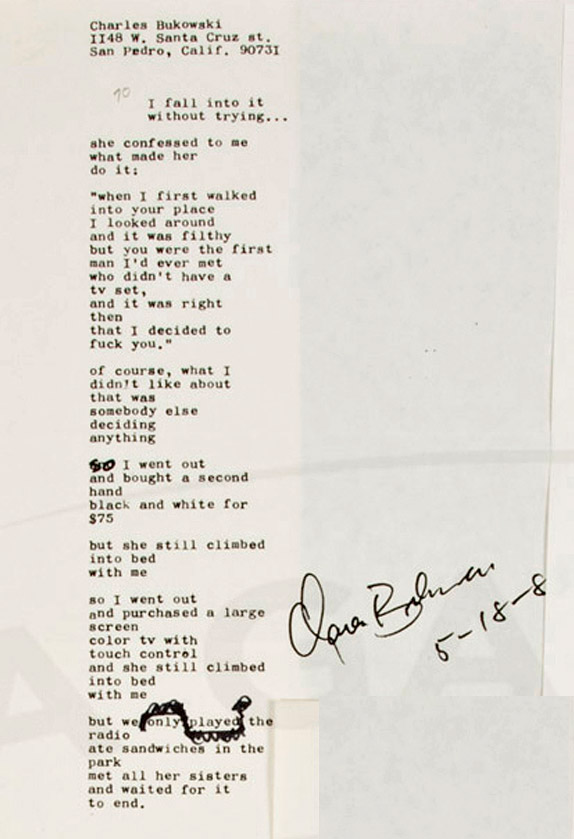 Charles Bukowski
1148 W. Santa Cruz st.
San Pedro, Calif. 90731
I fall into it
without trying...
she confessed to me
what made her
do it:
"when I first walked
into your place
I looked around
and it was filthy
but you were the first
man I'd ever met
who didn't have a
tv set,
and it was right
then
that I decided to
fuck you."
of course, what I
didn't like about
that was
somebody else
deciding
anything
so I went out
and bought a second
hand
black and white for
$75
but she still climbed
into bed
with me
so I went out
and purchased a large
screen
color tv with
touch control
and she still climbed
into bed
with me
but we only played the
radio
ate sandwiches in the
park
met all her sisters
and waited for it
to end.
5-18-8